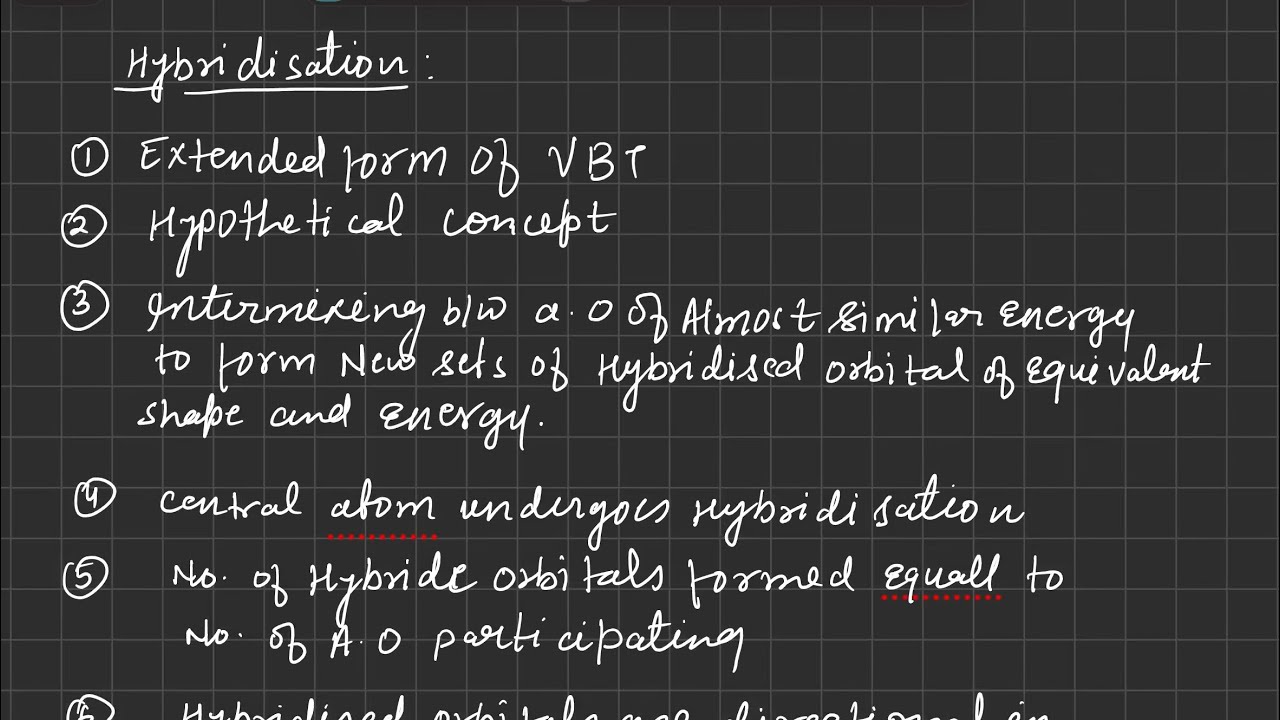 Hybridisation:
① Extended form of VBT
② Hypothetical concept
③ Intermixing b/w a.O of Almost similar energy
to form New sets of Hybridised orbital of equivalent
shape and energy.
④ central atom undergoes Hybridisation
⑤ No. of Hybride orbitals formed equall to
No. of A.O participating
⑥ Hybridised orbitals are directional in